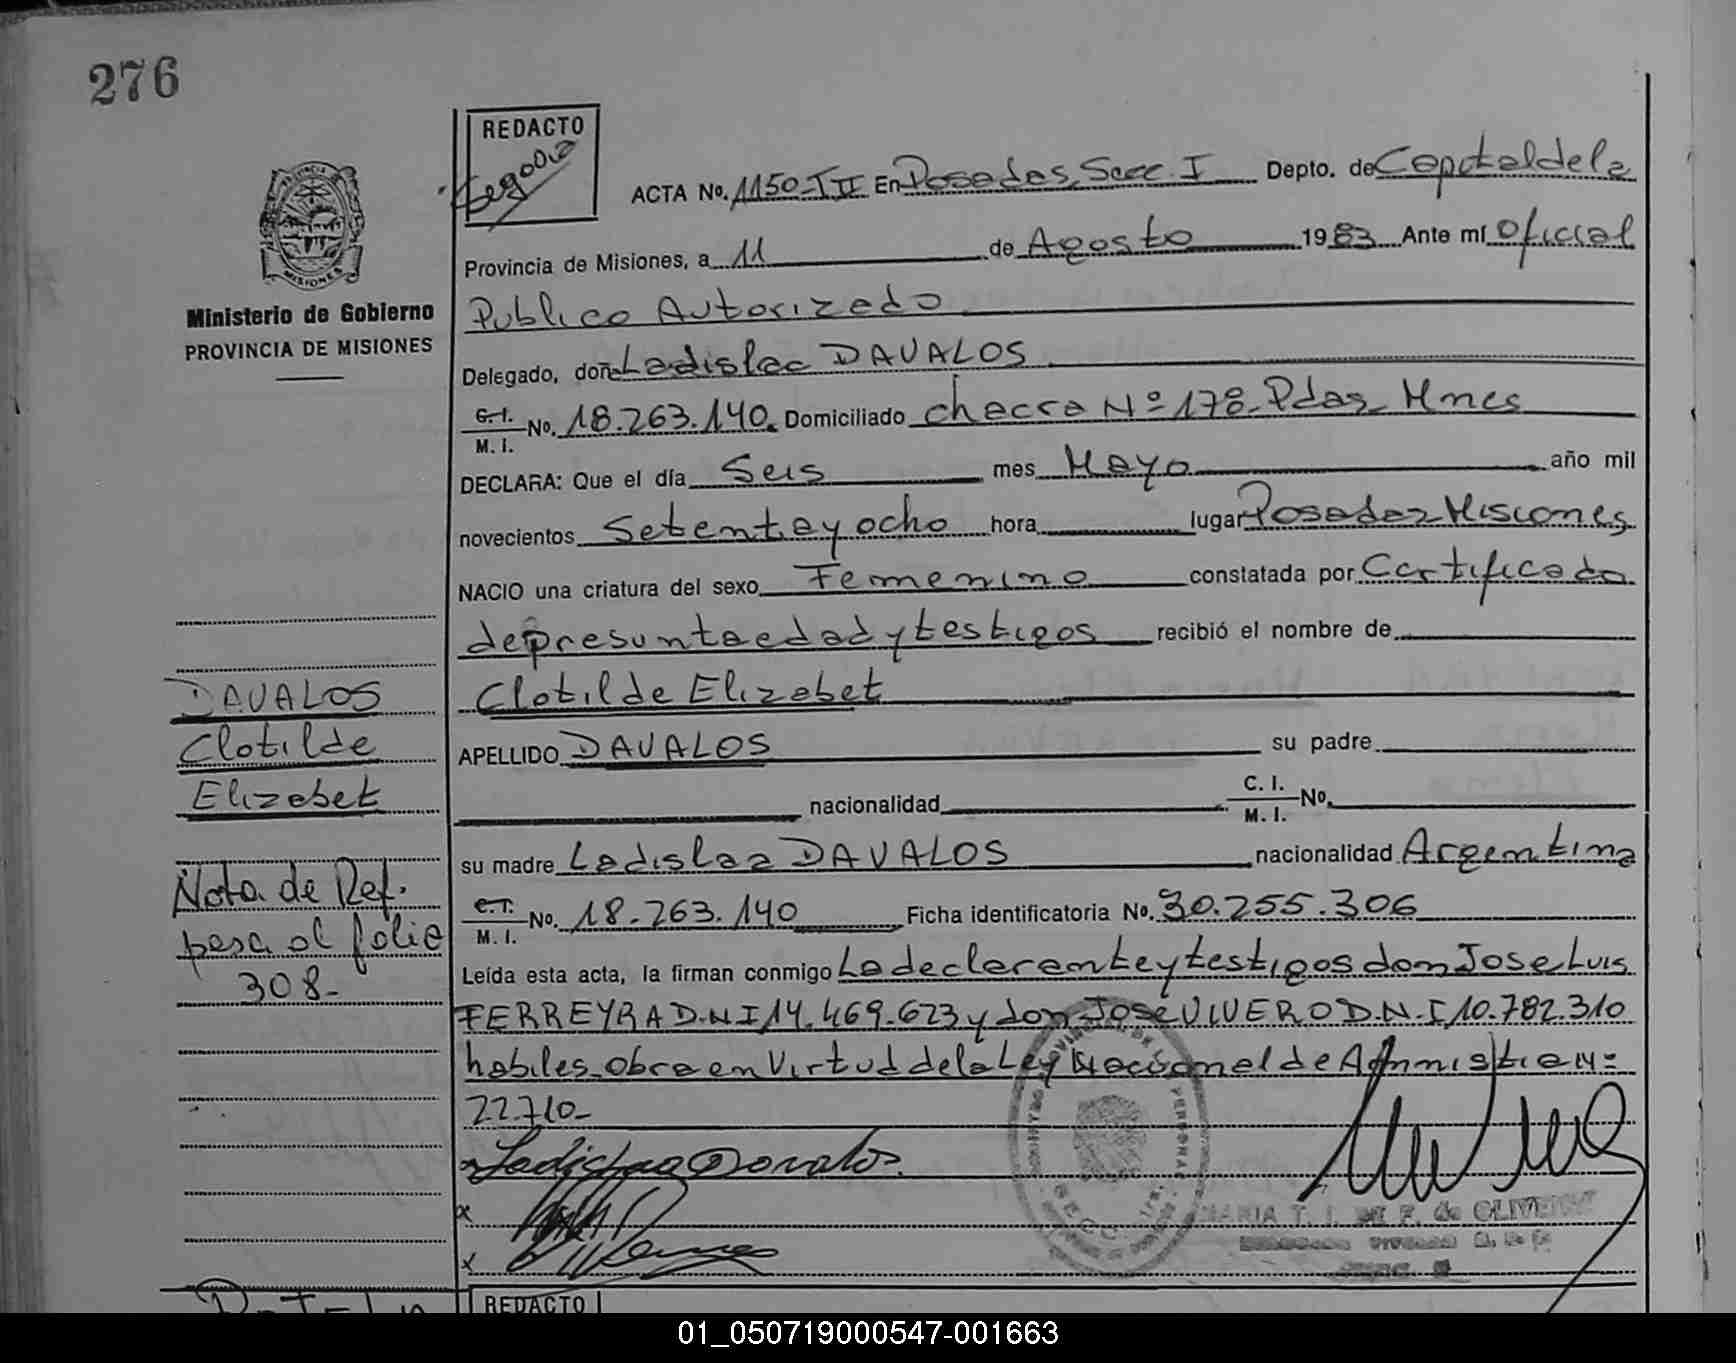 276
REDACTO
Segovia
ACTA No. 1150-T II En Posadas, Secc. I Depto. de Capital de la
Provincia de Misiones, a 11 de Agosto 1983 Ante mí Oficial
Publico Autorizado
Ministerio de Gobierno
PROVINCIA DE MISIONES
Delegado, doña Ladislaa DAVALOS
C. I.
M. I. No. 18.263.140. Domiciliado chacra Nº 178-Pdas-Mnes
DECLARA: Que el día Seis mes Mayo año mil
novecientos Setenta y ocho hora lugar Posadas Misiones
NACIO una criatura del sexo Femenino constatada por Certificado
de presunta edad y testigos recibió el nombre de
Clotilde Elizabet
APELLIDO DAVALOS su padre
nacionalidad C. I.
M. I. No.
su madre Ladislaa DAVALOS nacionalidad Argentina
C. I.
M. I. No. 18.263.140 Ficha identificatoria No. 30.255.306
Leída esta acta, la firman conmigo La declarante y testigos don Jose Luis
FERREYRA D.N.I 14.469.623 y don Jose VIVERO D.N.I 10.782.310
habiles. Obra en Virtud de la Ley Nacional de Amnistia Nº
22.710-
Ladislaa Davalos.
x
x
MARIA T. I. de OLIVEIRA
DAVALOS
Clotilde
Elizabet
Nota de Ref.
pasa al folio
308-
REDACTO
01_050719000547-001663